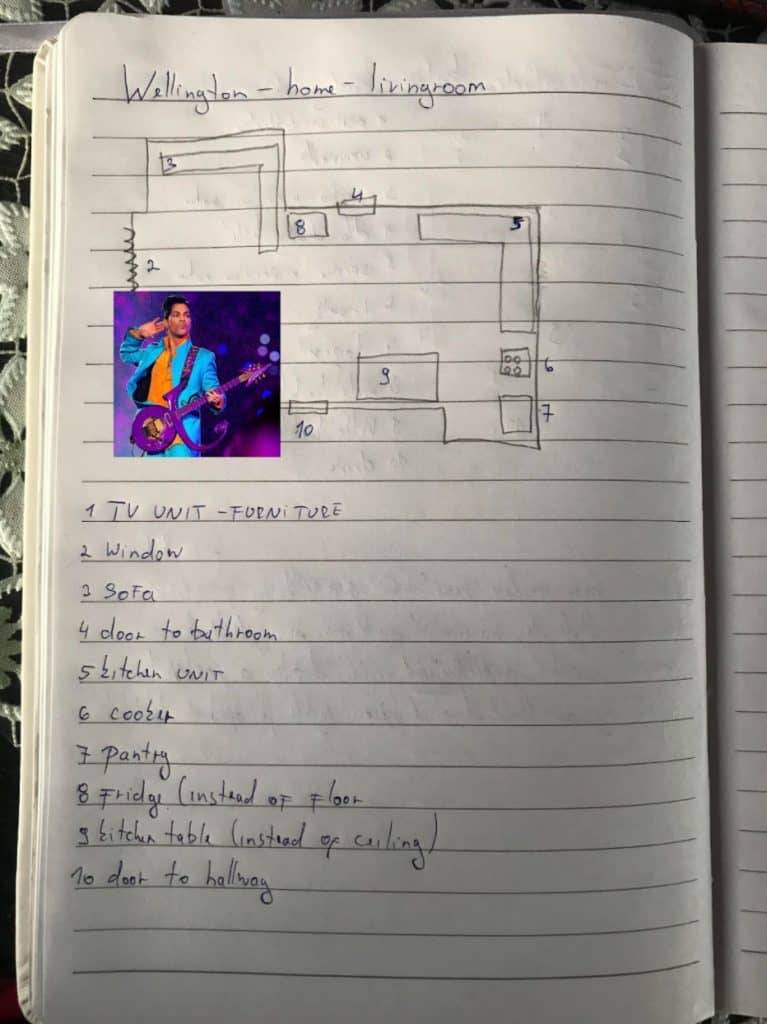 Wellington - home - livingroom
3
4
8
5
2
9
6
7
10
1 TV UNIT - FURNITURE
2 Window
3 SoFa
4 door to bathroom
5 kitchen UNIT
6 cooker
7 Pantry
8 Fridge (instead of Floor
9 kitchen table (instead of ceiling)
10 door to hallway